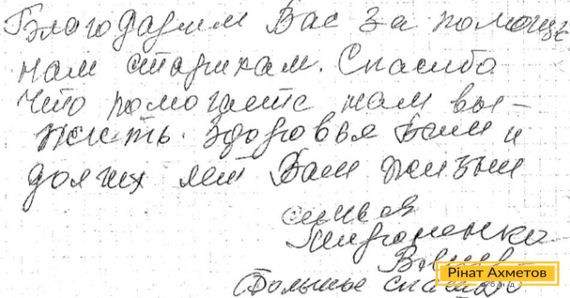 Благодарим Вас за помощь
нам старикам. Спасибо
что помогаете нам вы-
жить. Здоровья Вам и
долгих лет Вам жизни
семья
Мироненко
Рінат Ахметов
Фонд
Большое спасибо